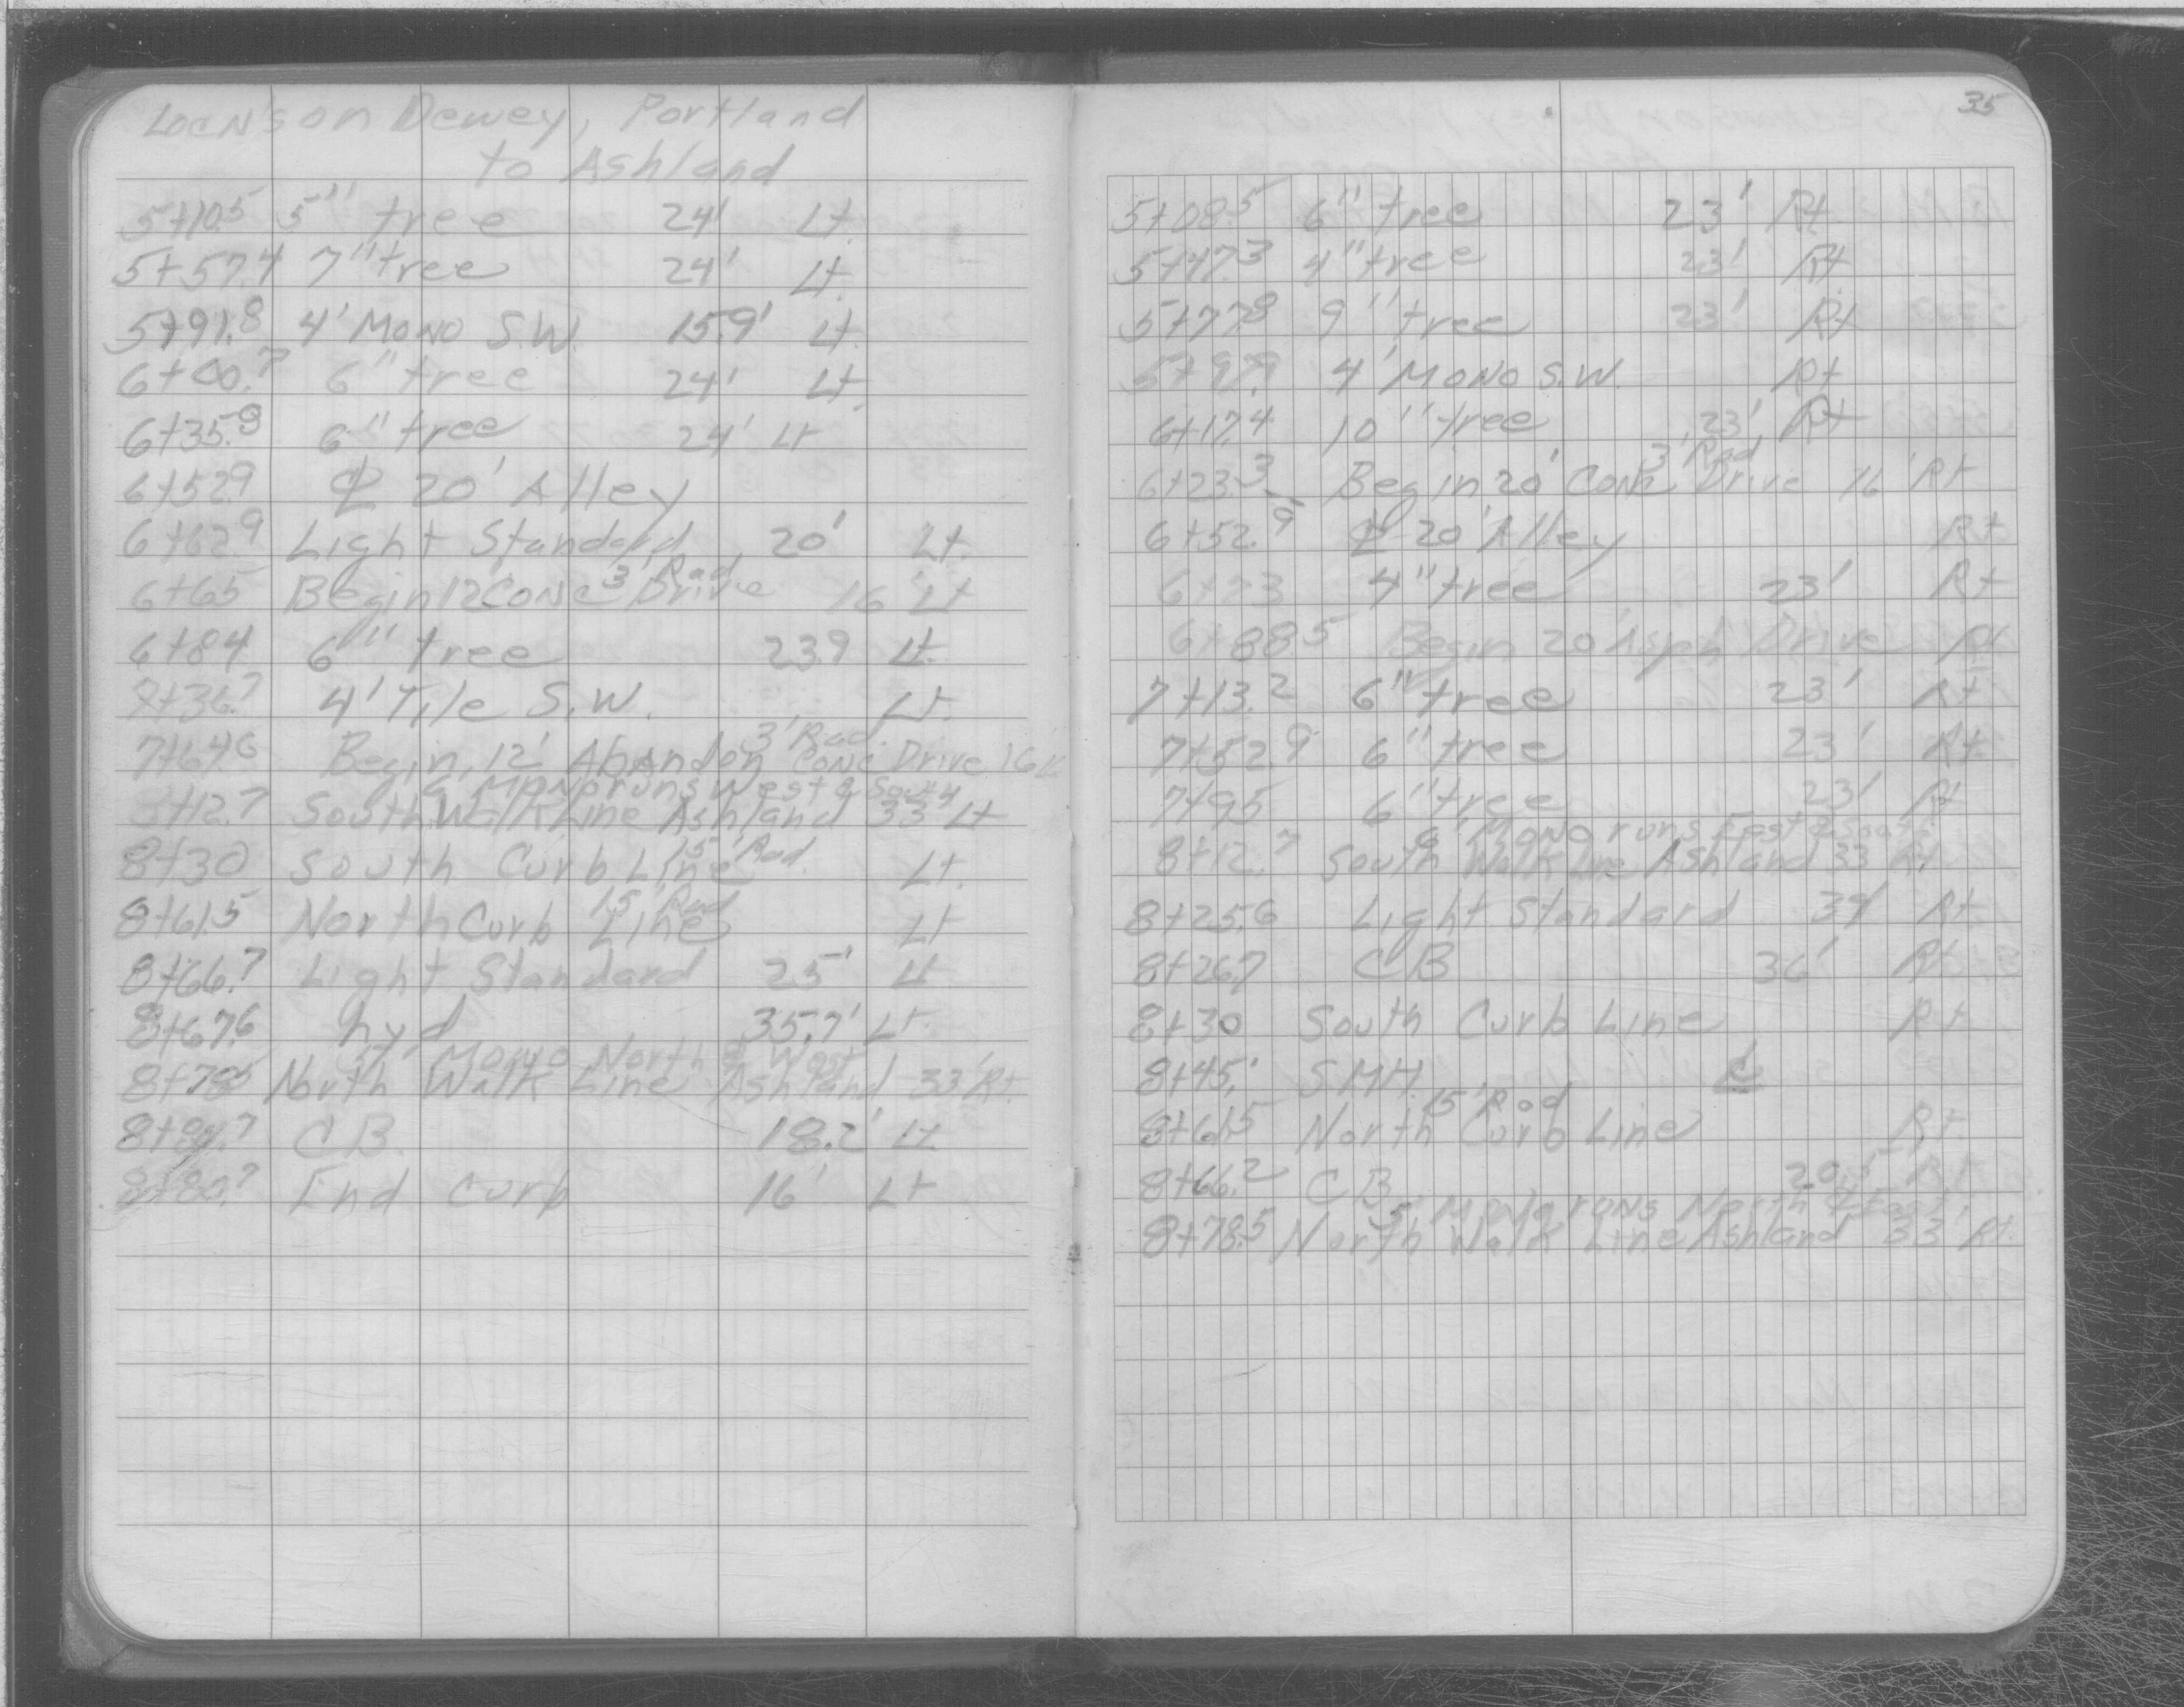 Locn's on Dewey, Portland
to Ashland
5+10.5 5" tree 24' Lt.
5+57.4 7" tree 24' Lt.
5+91.8 4' Mono S.W. 15.9' Lt.
6+00.7 6" tree 24' Lt.
6+35.9 6" tree 24' Lt
6+52.9 ℄ 20' Alley
6+62.9 Light Standard 20' Lt.
3' Rad
6+65 Begin 12' Conc Drive 16' Lt
6+84 6" tree 23.9 Lt.
4' Tile S.W. Lt.
3' Rad.
7+64.6 Begin 12' Abandon Conc Drive 16'
6' Mono runs West & South
8+12.7 South Walk Line Ashland 33' Lt
15' Rad.
8+30 South Curb Line Lt.
15' Rad
8+61.5 North Curb Line Lt
8+66.7 Light Standard 25' Lt
8+67.6 hyd 35.7' Lt.
Mono North & West
8+78.5 North Walk Line Ashland 33' Rt.
C B. 18.2' Lt.
End Curb 16' Lt
35
5+08.5 6" tree 23' Rt
5+47.3 4" tree 23' Rt
5+77.8 9" tree 23' Rt
4' Mono S.W. Rt
6+17.4 10" tree 23' Rt
3' Rad
6+23.3 Begin 20' Conc Drive 16' Rt
6+52.9 ℄ 20' Alley Rt
6+73 4" tree 23' Rt
6+88.5 Begin 20' Asph Drive Rt
7+13.2 6" tree 23' Rt
7+52.9 6" tree 23' Rt.
7+95 6" tree 23' Rt
Mono runs East & South
8+12.7 South Walk Line Ashland 33' Rt
8+25.6 Light Standard Rt.
8+26.7 C B 36' Rt
8+30 South Curb Line Rt
8+45. SMH. ℄
15' Rad
8+61.5 North Curb Line Rt.
8+66.2 C B. 20.5' Rt
5' Mono runs North & East
8+78.5 North Walk Line Ashland 33' Rt.